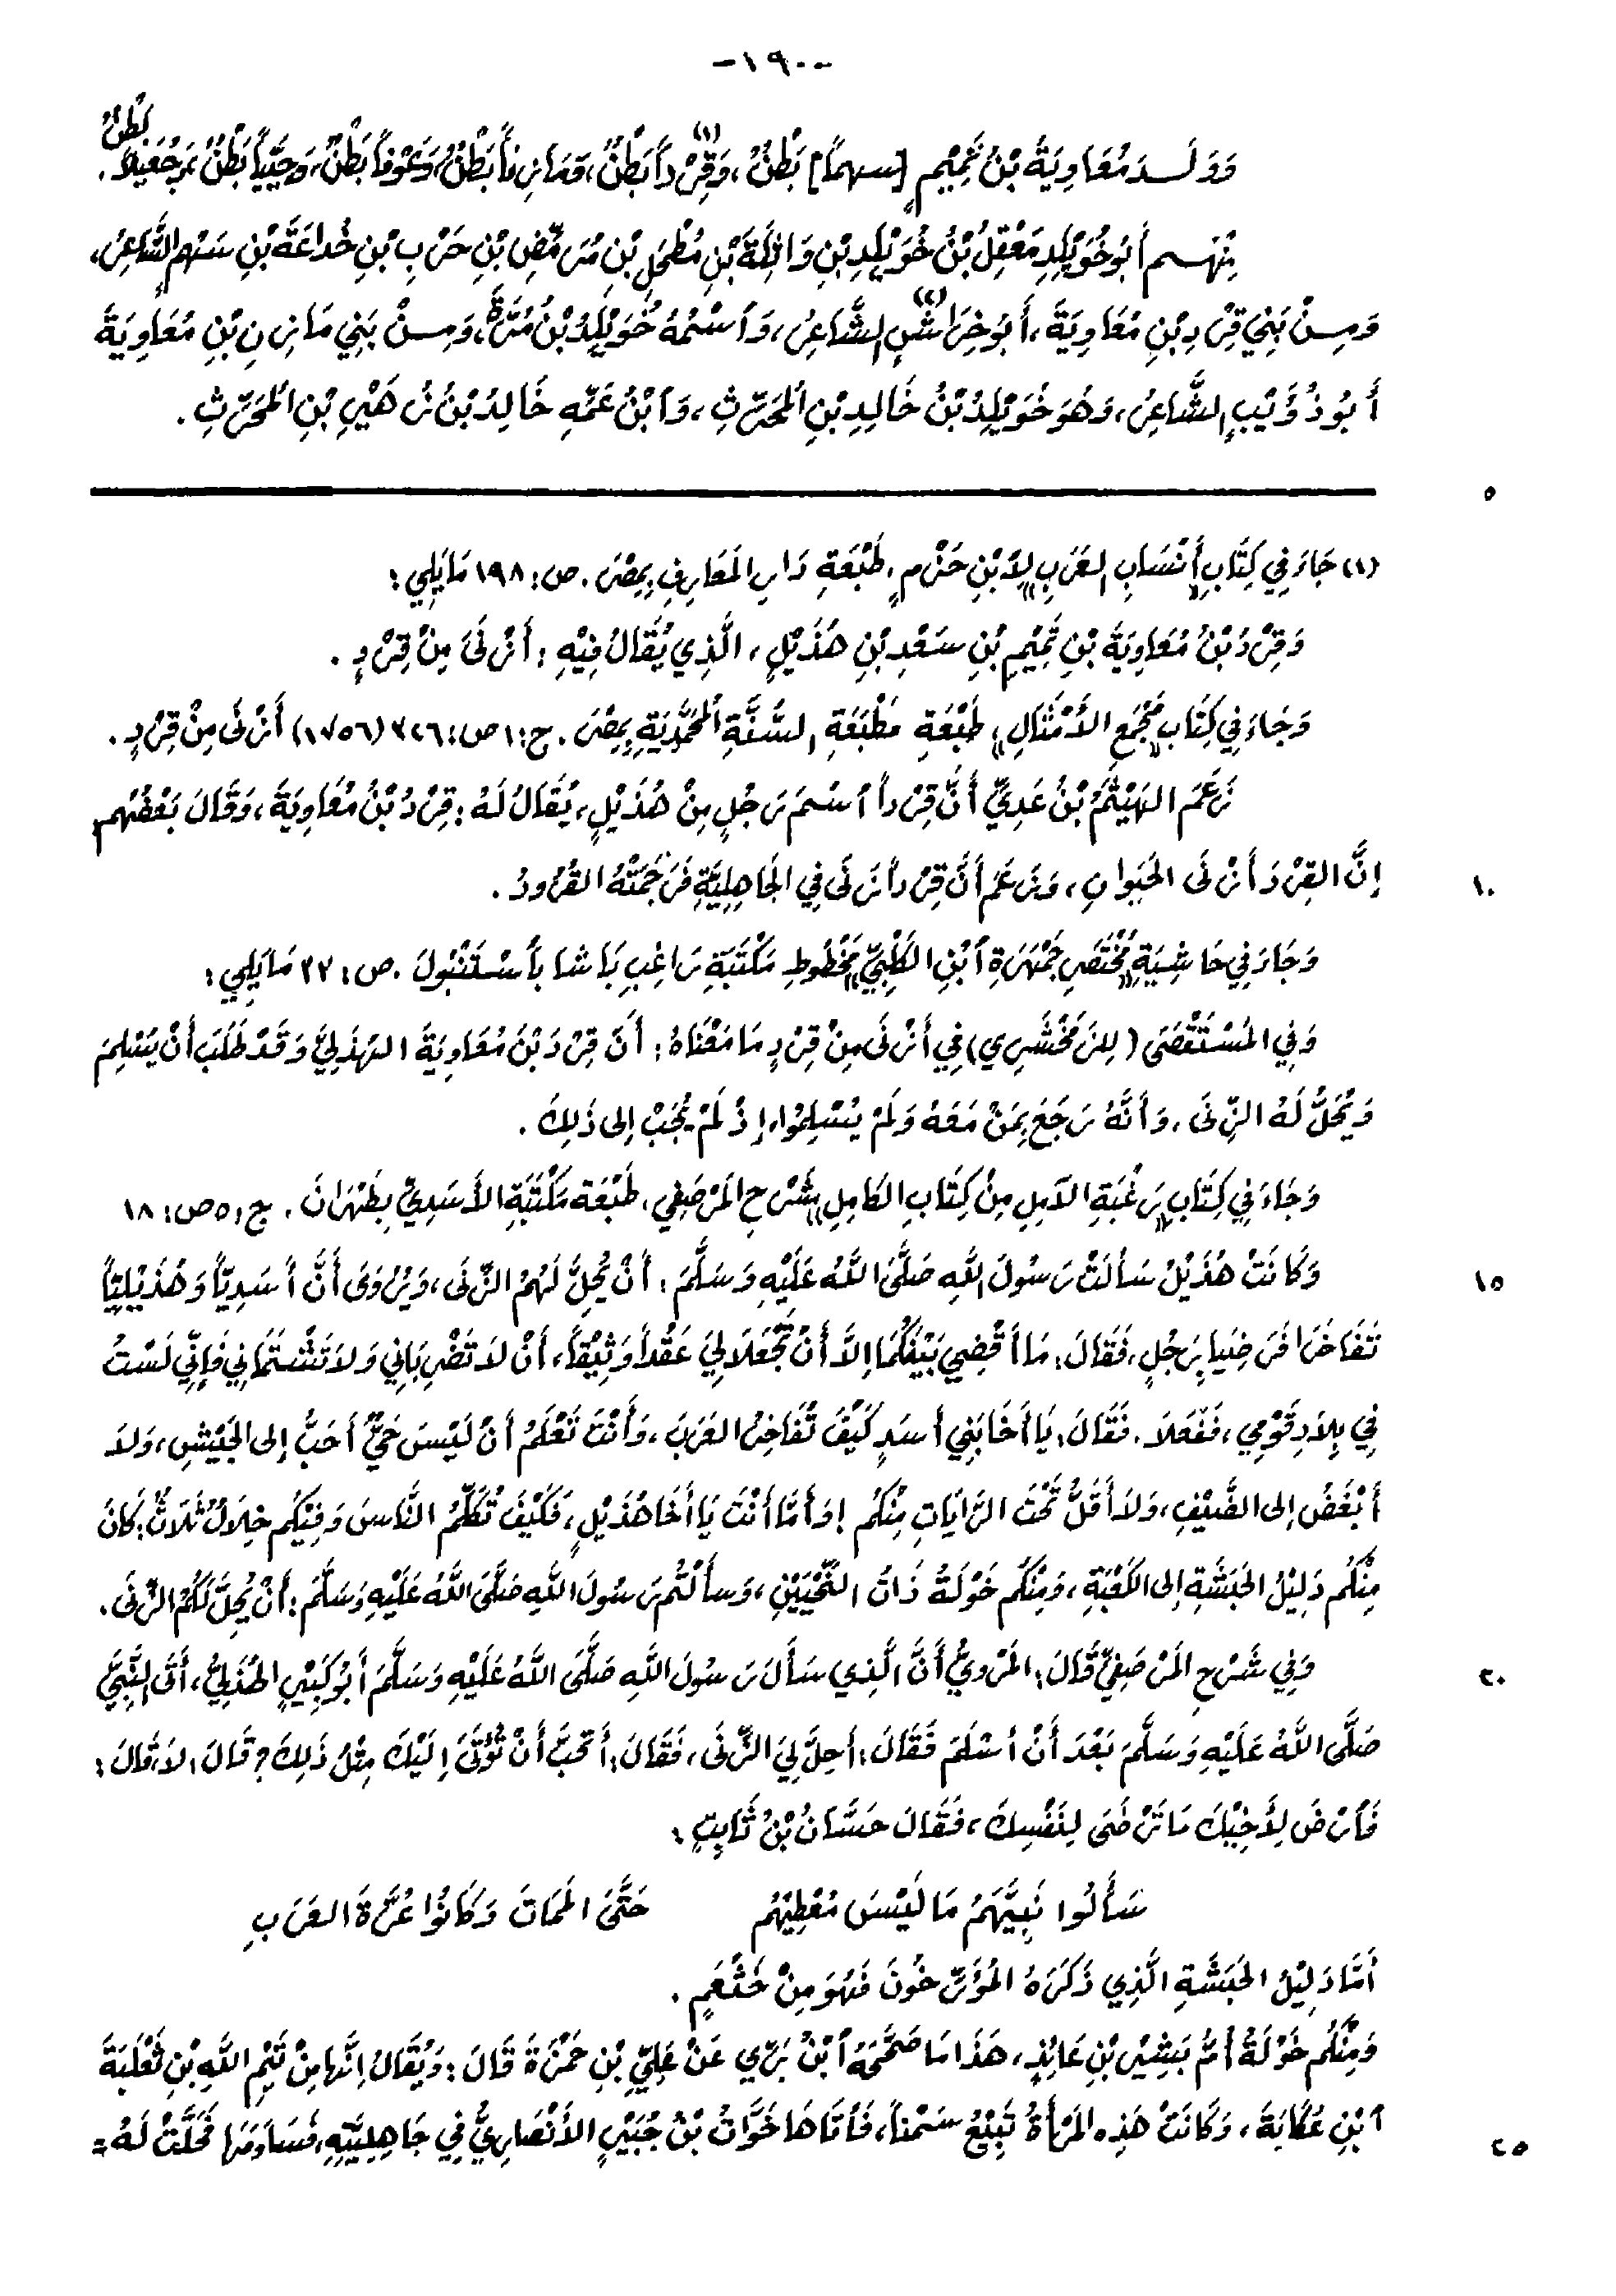 -١٩٠-
وَوَلَدَ مُعَاوِيَةُ بْنُ تَمِيْمٍ [سهماً] بَطْنٌ، وَقِرْداً(١) بَطْنٌ، وَمَازِناً بَطْنٌ، وَعَوْفاً بَطْنٌ، وَحُيَيّاً بَطْنٌ، وَجُعَيْلاً بَطْنٌ.
مِنْهُم أَبُو خُوَيْلِدِ مَعْقِلُ بْنُ خُوَيْلِدِ بْنِ وَائِلَةَ بْنِ مُطْحَلِ بْنِ مُرَمِّضِ بْنِ حَرْبِ بْنِ خُدَاعَةَ بْنِ سَهْمٍ الشَّاعِرُ،
وَمِنْ بَنِي قِرْدِ بْنِ مُعَاوِيَةَ، أَبُو خِرَاشٍ(٢) الشَّاعِرُ، وَاسْمُهُ خُوَيْلِدُ بْنُ مُرَّةَ، وَمِنْ بَنِي مَازِنِ بْنِ مُعَاوِيَةَ
أَبُو ذُؤَيْبٍ الشَّاعِرُ، وَهُوَ خُوَيْلِدُ بْنُ خَالِدِ بْنِ المُحَرِّثِ، وَابْنُ عَمِّهِ خَالِدُ بْنُ زُهَيْرِ بْنِ المُحَرِّثِ.
٥
(١) جَاءَ فِي كِتَابِ «أَنْسَابِ العَرَبِ» لِابْنِ حَزْمٍ، طَبْعَةِ دَارِ المَعَارِفِ بِمِصْرَ. ص: ١٩٨ مَا يَلِي:
وَقِرْدُ بْنُ مُعَاوِيَةَ بْنِ تَمِيْمِ بْنِ سَعْدِ بْنِ هُذَيْلٍ، الَّذِي يُقَالُ فِيْهِ: أَزْنَى مِنْ قِرْدٍ.
وَجَاءَ فِي كِتَابِ «مَجْمَعِ الأَمْثَالِ» طَبْعَةِ مَطْبَعَةِ السُّنَّةِ المُحَمَّدِيَّةِ بِمِصْرَ. ج: ١ ص: ٣٢٦ (١٧٥٦) أَزْنَى مِنْ قِرْدٍ.
زَعَمَ الهَيْثَمُ بْنُ عَدِيٍّ أَنَّ قِرْداً اسْمَ رَجُلٍ مِنْ هُذَيْلٍ، يُقَالُ لَهُ: قِرْدُ بْنُ مُعَاوِيَةَ، وَقَالَ بَعْضُهُم
إِنَّ القِرْدَ أَزْنَى الحَيَوانِ، وَزَعَمَ أَنَّ قِرْداً زَنَى فِي الجَاهِلِيَّةِ فَرَجَمَتْهُ القُرُودُ.
١٠
وَجَاءَ فِي حَاشِيَةِ «مُخْتَصَرِ جَمْهَرَةِ ابْنِ الكَلْبِيِّ» مَخْطُوطِ مَكْتَبَةِ رَاغِبِ بَاشا بِاسْتَنْبُولَ. ص: ٣٢ مَا يَلِي:
وَفِي المُسْتَقْصَى (لِلزَّمَخْشَرِي) فِي أَزْنَى مِنْ قِرْدٍ مَا مَعْنَاهُ: أَنَّ قِرْدَ بْنَ مُعَاوِيَةَ الهُذَلِيَّ وَقَدْ طَلَبَ أَنْ يُسْلِمَ
وَيُحَلَّ لَهُ الزِّنَى، وَأَنَّهُ رَجَعَ بِمَنْ مَعَهُ وَلَمْ يُسْلِمُوا، إِذْ لَمْ يُجَبْ إِلى ذَلِكَ.
وَجَاءَ فِي كِتَابِ «رَغْبَةِ الآمِلِ مِنْ كِتَابِ الكَامِلِ» بِشَرْحِ المَرْصَفِي، طَبْعَة مَكْتَبَةِ الأَسَدِيِّ بِطَهْرَانَ. ج: ٥ ص: ١٨
وَكَانَتْ هُذَيْلُ سَأَلَتْ رَسُولَ اللهِ صَلَّى اللَّهُ عَلَيْهِ وَسَلَّمَ: أَنْ يُحِلَّ لَهُمُ الزِّنَى، وَيُرْوَى أَنَّ أَسَدِيّاً وَهُذَيْلِيّاً
١٥
تَفَاخَرَا فَرَضِيَا بِرَجُلٍ، فَقَالَ: مَا أَقْضِي بَيْنَكُمَا إِلاَّ أَنْ تَجْعَلَا لِيَ عَقْداً وَثِيْقاً، أَنْ لاَ تَضْرِبَانِي وَلاَ تَشْتَمَانِي فَإِنِّي لَسْتُ
فِي بِلاَدِ قَوْمِي، فَفَعَلَا. فَقَالَ: يَا أَخَا بَنِي أَسَدٍ كَيْفَ تُفَاخِرُ العَرَبَ، وَأَنْتَ تَعْلَمُ أَنْ لَيْسَ حَيٌّ أَحَبُّ إِلى الجَيْشِ، وَلاَ
أَبْغَضُ إِلى الضَّيْفِ، وَلاَ أَقَلُّ تَحْتَ الرَّايَاتِ مِنْكُم! وَأَمَّا أَنْتَ يَا أَخَا هُذَيْلٍ، فَكَيْفَ تُكَلِّمُ النَّاسَ وَفِيْكُم خِلَالٌ ثَلَاثٌ: كَانَ
مِنْكُم دَلِيْلُ الحَبَشَةِ إِلى الكَعْبَةِ، وَمِنْكُم خَوْلَةُ ذَاتُ النِّحْيَيْنِ، وَسَأَلْتُم رَسُولَ اللهِ صَلَّى اللَّهُ عَلَيْهِ وَسَلَّمَ: أَنْ يُحِلَّ لَكُمُ الزِّنَى.
وَفِي شَرْحِ المَرْصَفِيِّ قَالَ: المَرْوِيُّ أَنَّ الَّذِي سَأَلَ رَسُولَ اللهِ صَلَّى اللَّهُ عَلَيْهِ وَسَلَّمَ أَبُو كَبِيْرٍ الهُذَلِيُّ، أَتَى النَّبِيَّ
٢٠
صَلَّى اللَّهُ عَلَيْهِ وَسَلَّمَ بَعْدَ أَنْ أَسْلَمَ فَقَالَ: أَحِلَّ لِيَ الزِّنَى، فَقَالَ: أَتُحِبُّ أَنْ يُؤْتَى إِلَيْكَ مِثْلُ ذَلِكَ؟ قَالَ: لاَ، قَالَ:
فَارْضَ لِأَخِيْكَ مَا تَرْضَى لِنَفْسِكَ، فَقَالَ حَسَّانُ بْنُ ثَابِتٍ:
سَأَلُوا نَبِيَّهُمُ مَا لَيْسَ مُعْطِيَهُم حَتَّى المَمَاتَ وَكَانُوا عُرَّةَ العَرَبِ
أَمَّا دَلِيْلُ الحَبَشَةِ الَّذِي ذَكَرَهُ المُؤَرِّخُونَ فَهُوَ مِنْ خَثْعَمٍ.
وَمِنْكُم خَوْلَةُ أُمُّ بَشِيْرِ بْنِ عَائِذٍ، هَذَا مَا صَحَّحَهُ ابْنُ بَرِّي عَنْ عَلِيِّ بْنِ حَمْزَةَ قَالَ: وَيُقَالُ إِنَّهَا مِنْ تَيْمِ اللَّهِ بْنِ ثَعْلَبَةَ
ابْنِ عُكَابَةَ، وَكَانَتْ هَذِهِ المَرْأَةُ تَبِيْعُ سَمْناً، فَأَتَاهَا خَوَّاتُ بْنُ جُبَيْرٍ الأَنْصَارِيُّ فِي جَاهِلِيَّتِهِ، فَسَاوَمَهَا فَحَلَّتْ لَهُ =
٢٥